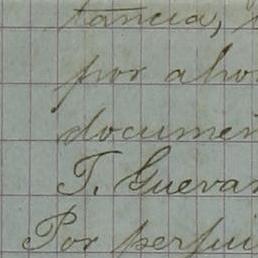 tancia,
por aho
documen
T. Guevar
Por perjui